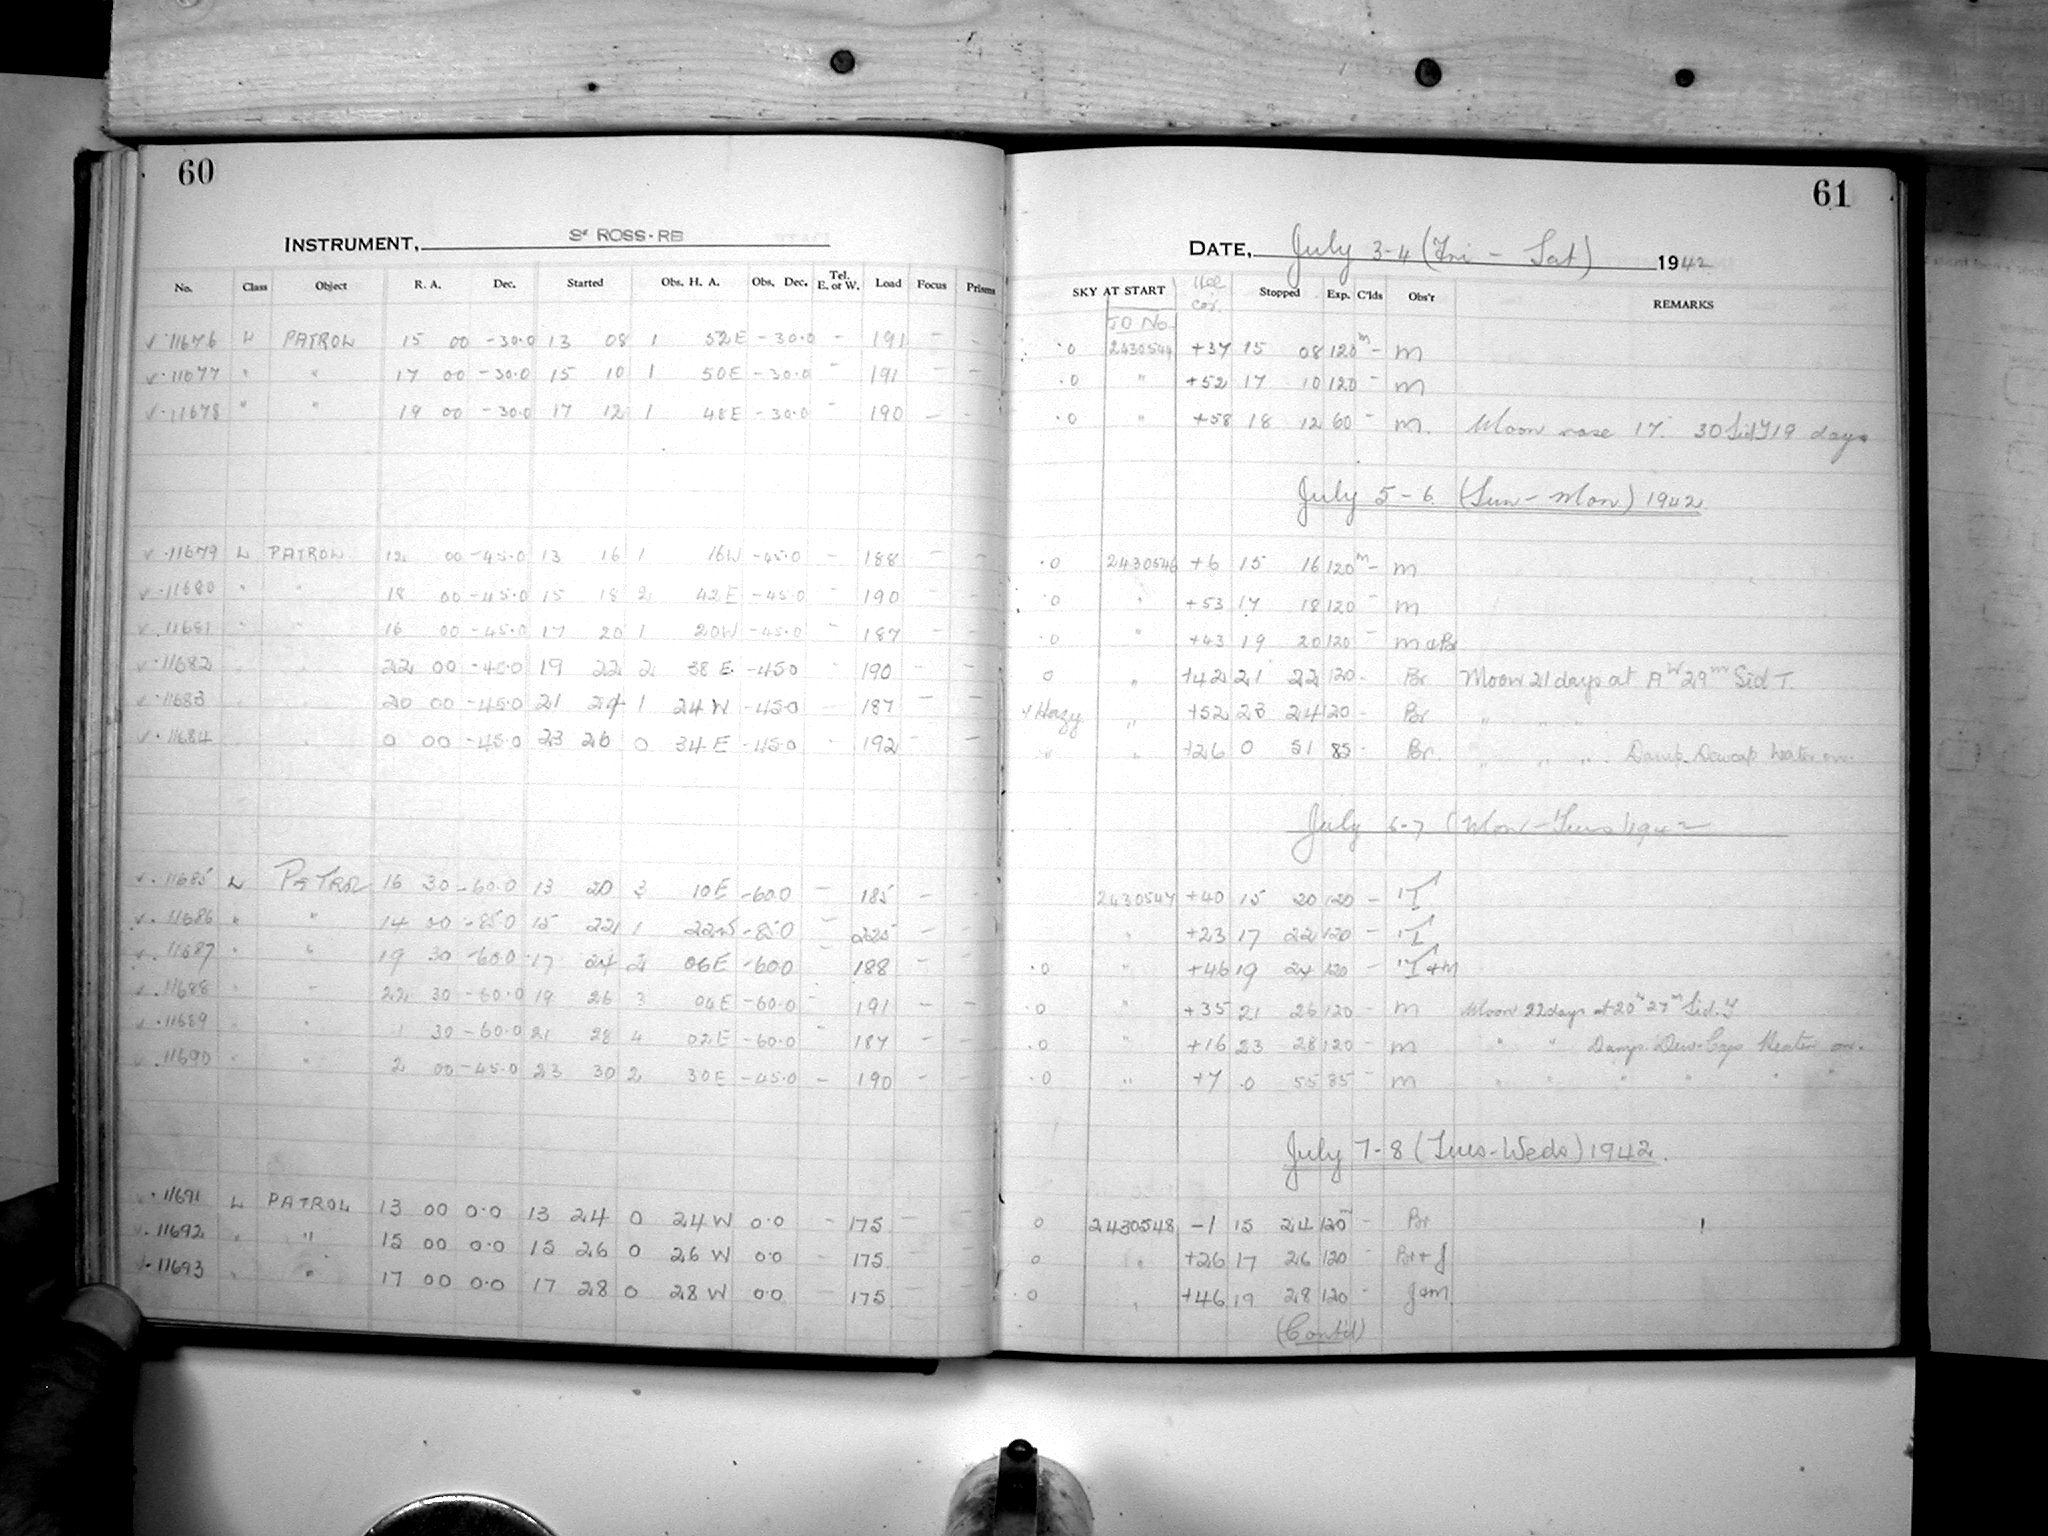 60
INSTRUMENT, Sr ROSS-RB
No. Class Object R. A. Dec. Started Obs. H. A. Obs. Dec. Tel. E. or W. Load Focus Prisms
√ 11676 L PATROL 15 00 -30.0 13 08 1 52E -30.0 - 191 - -
√ 11677 " " 17 00 -30.0 15 10 1 50E -30.0 - 191 - -
√ 11678 " " 19 00 -30.0 17 12 1 48E -30.0 - 190 - -
√ 11679 L PATROL 12 00 -45.0 13 16 1 16W -45.0 - 188 - -
√ 11680 " " 18 00 -45.0 15 18 2 42E -45.0 - 190 - -
√ 11681 " " 16 00 -45.0 17 20 1 20W -45.0 - 187 - -
√ 11682 " " 22 00 -45.0 19 22 2 38E -45.0 - 190 - -
√ 11683 " " 20 00 -45.0 21 24 1 24W -45.0 - 187 - -
√ 11684 " 0 00 -45.0 23 26 0 34E -45.0 - 192 - -
√ 11685 L PATROL 16 30 -60.0 13 20 3 10E -60.0 - 185 - -
√ 11686 " " 14 00 -85.0 15 22 1 22W -85.0 - 225 - -
√ 11687 " " 19 30 -60.0 17 24 2 06E -60.0 - 188 - -
√ 11688 " " 22 30 -60.0 19 26 3 04E -60.0 - 191 - -
√ 11689 " " 1 30 -60.0 21 28 4 02E -60.0 - 187 - -
√ 11690 " " 2 00 -45.0 23 30 2 30E -45.0 - 190 - -
√ 11691 L PATROL 13 00 0.0 13 24 0 24W 0.0 - 175 -
√ 11692 " " 15 00 0.0 15 26 0 26W 0.0 - 175 -
√ 11693 " " 17 00 0.0 17 28 0 28W 0.0 - 175 -
61
DATE, July 3-4 (Fri - Sat) 1942
SKY AT START JD No. Hel cor. Stopped Exp. C'lds Obs'r REMARKS
.0 2430544 +37 15 08 120m - m
.0 " +52 17 10 120 - m
.0 " +58 18 12 60 - m. Moon rose 17. 30 Sid T 19 days
July 5-6 (Sun-Mon) 1942
.0 2430546 +6 15 16 120m - m
.0 " +53 17 18 120 - m
.0 " +43 19 20 120 - m & Br
0 " +42 21 22 120 - Br Moon 21 days at 29m Sid T.
v Hazy " +52 23 24 120 - Br " " "
" " +26 0 51 85 - Br. " " " Damp. Dewcap heater on.
July 6-7 (Mon-Tues) 1942
2430547 +40 15 20 120 -
" +23 17 22 120 -
.0 " +46 19 24 120 -
.0 " +35 21 26 120 - m Moon 22 days at 20h 27m Sid. T
.0 " +16 23 28 120 - m " " Damp. Dew-Cap Heater on.
.0 " +7 0 55 85 - m " " " " " "
July 7-8 (Tues-Weds) 1942.
0 2430548 -1 15 24 120m - Br
0 " +26 17 26 120 - Br + J
.0 " +46 19 28 120 - J & m
(Contd)